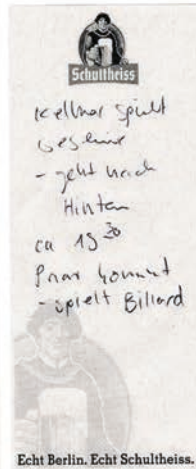 Schultheiss
Kellner spült
Geschirr
- geht nach
Hinten
ca 19 30
Paar kommt
- spielt Billard
Echt Berlin. Echt Schultheiss.